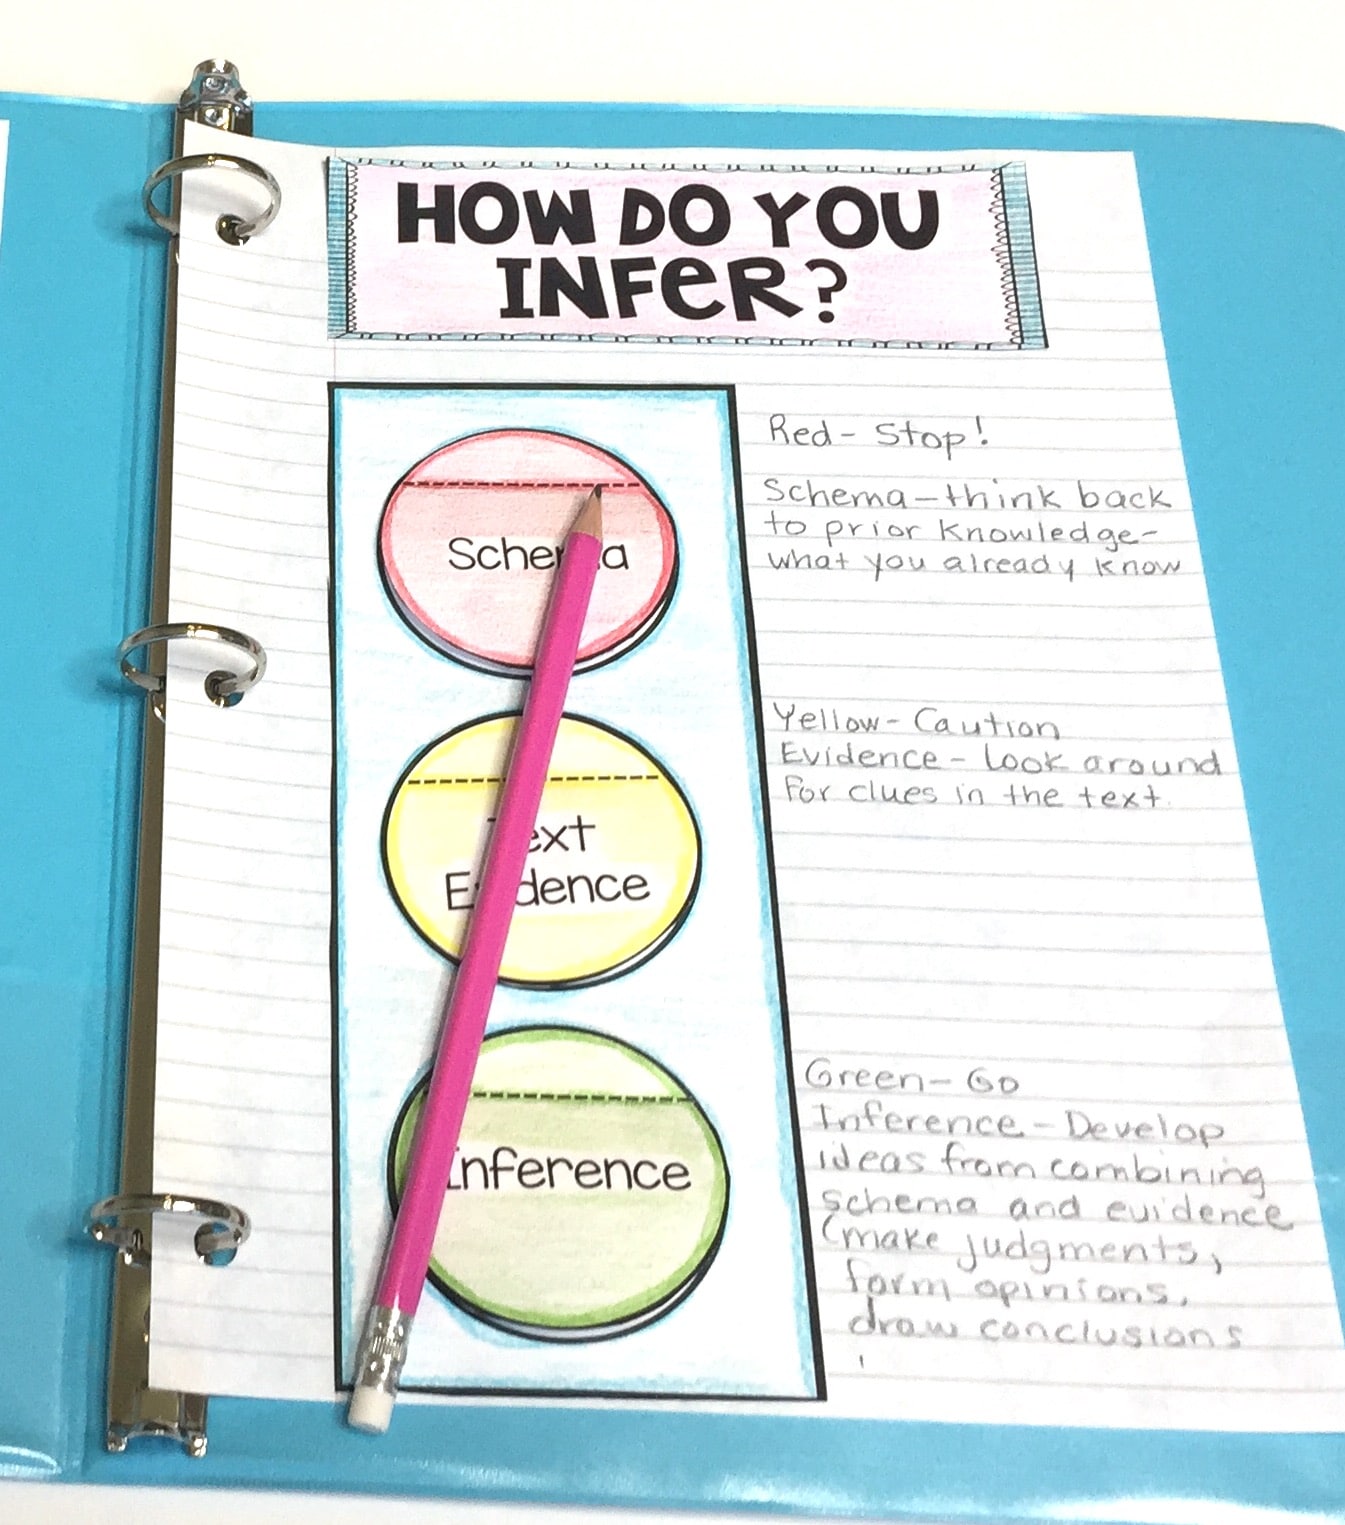 HOW DO YOU
INFER?
Schema
Red- Stop!
Schema-think back
to prior knowledge-
what you already know
Text
Evidence
Yellow- Caution
Evidence- Look around
for clues in the text.
Inference
Green- Go
Inference- Develop
ideas from combining
schema and evidence
(make judgments,
form opinions,
draw conclusions